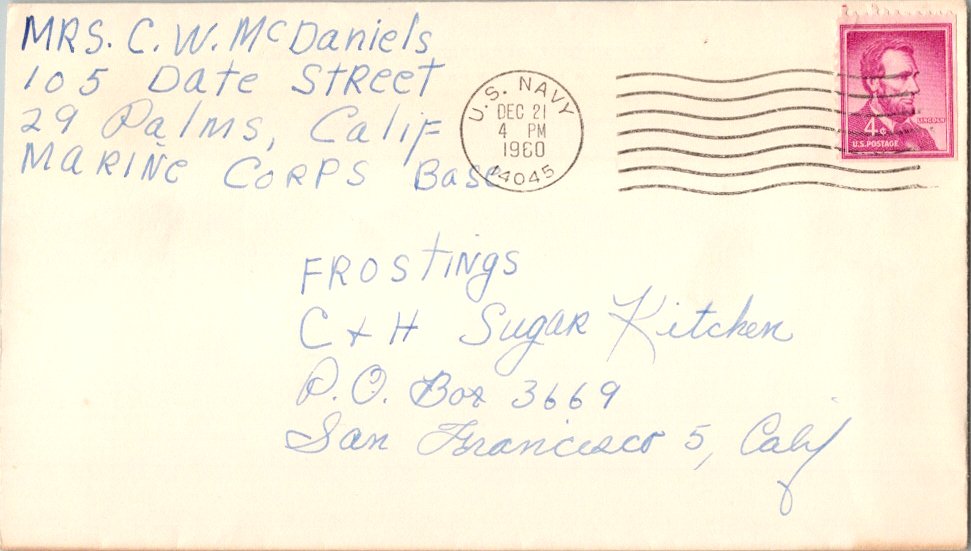 MRS. C. W. McDaniels
105 Date Street
29 Palms, Calif
Marine Corps Base
U.S. NAVY
DEC 21
4 PM
1960
14045
LINCOLN
4¢
U.S. POSTAGE
Frostings
C & H Sugar Kitchen
P.O. Box 3669
San Francisco 5, Calif